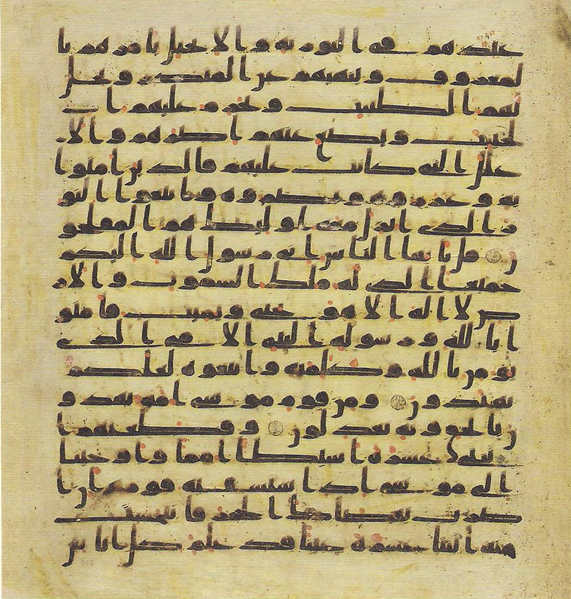 عندهم في التوريه والانجيل يامرهم با
لمعروف وينهيهم عن المنكر ويحل
لهم الطيبت ويحرم عليهم ا
لخبيث ويضع عنهم اصرهم والا
غلل التي كانت عليهم فالذين امنوا
به وعزروه ونصروه واتبعوا النو
ر الذي انزل معه اوليك هم المفلحو
ن قل يايها الناس اني رسول الله اليكم
جميعا الذي له ملك السموت والا
رض لا اله الا هو يحي ويميت فامنو
ا بالله ورسوله النبي الامي الذي
يومن بالله وكلمته واتبعوه لعلكم
تهتدون ومن قوم موسى امه يهدو
ن بالحق وبه يعدلون وقطعنهم ا
ثنتي عشره اسباطا امما واوحينا
الى موسى اذ استسقيه قومه ان ا
ضرب بعصاك الحجر فانبجست
منه اثنتا عشره عينا قد علم كل اناس